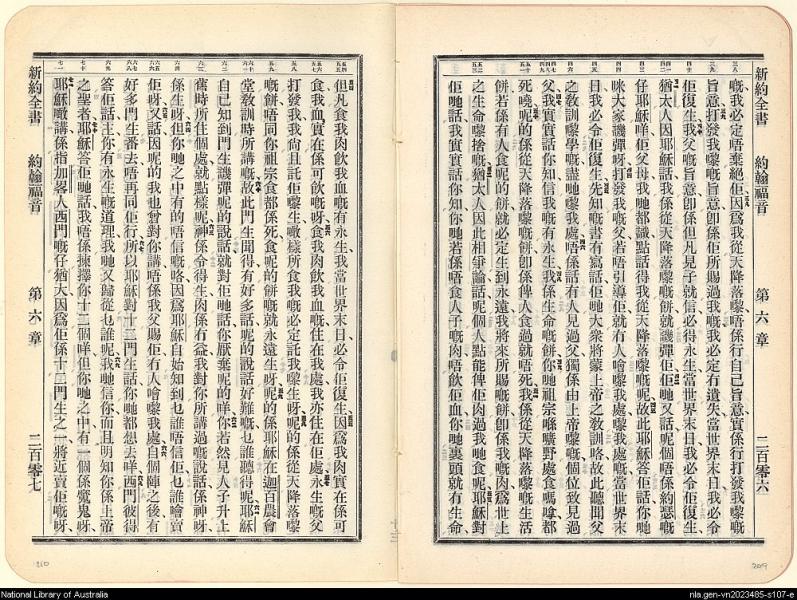 新約全書 約翰福音 第六章 二百零六
嘅我必定唔棄絕佢因爲我從天降落嚟唔係行自己旨意實係行打發我嚟嘅
旨意打發我嚟嘅旨意卽係佢所賜過我嘅我必定冇遺失當世界末日我必令
佢復生我父嘅旨意卽係但凡見子就信必得永生當世界末日我必令佢復生
猶太人因耶穌話我係從天降落嚟嘅餅就譏彈佢佢哋又話呢個唔係約瑟嘅
仔耶穌咩佢父母我哋都識點話得我從天降落嚟嘅呢故此耶穌答佢話你哋
咪大家譏彈呀打發我嘅父若唔引導佢就冇人噲嚟我處嚟我處嘅當世界末
日我必令佢復生先知嘅書有寫話佢哋大衆將蒙上帝之敎訓咯故此聽聞父
之敎訓嚟學嘅盡哋嚟我處唔係話有人見過父獨係由上帝嚟個位致見過
父我實實話你知信我嘅有永生我係生命嘅餅你哋祖宗喺曠野處食嗎嗱都
死曉呢的係從天降落嚟嘅餅卽係俾人食過就唔死我係從天降落嚟嘅生活
餅若係有人食呢的餅就必定生到永遠我將來所賜嘅餅卽係我嘅肉爲世上
之生命嚟捨嘅猶太人因此相爭論話呢個人點能俾佢肉過我哋食呢耶穌對
佢哋話我實實話你知你哋若係唔食人子嘅肉唔飲佢血你哋裏頭就冇生命
但凡食我肉飲我血嘅有永生我當世界末日必令佢復生因爲我肉實在係可
食我血實在係可飲嘅呀食我肉飲我血嘅住在我處我亦住在佢處永生嘅父
打發我我尚且託佢嚟生噉樣所食我嘅必定託我嚟生呀呢的係從天降落嚟
嘅餅唔同你祖宗食都係死食呢的餅嘅就永遠生呀呢的係耶穌在迦百農會
堂敎訓時所講嘅故此門生聞得有好多話呢的說話好難嘅乜誰聽得呢耶穌
自己知到門生譏彈呢的說話就對佢哋話你厭棄呢的咩你若然見人子升上
舊時所住個處就點樣呢神係令得生肉係冇益我對你所講過嘅說話係神呀
係生呀但你哋之中有的唔信嘅咯因爲耶穌自始知到乜誰唔信佢乜誰噲賣
佢呀又話因呢的我也曾對你講唔係我父賜佢冇人噲嚟我處自個陣之後有
好多門生番去唔再同佢行所以耶穌對十二門生話你哋都想去咩西門彼得
答佢話主你有永生嘅道理我哋又歸從乜誰呢我哋信你而且明知你係上帝
之聖者耶穌答佢哋話我唔係揀擇你十二個咩但你哋之中有一個係魔鬼呀
耶穌噉講係指加畧人西門嘅仔猶大因爲佢係十二門生之一將近賣佢嘅呀
新約全書 約翰福音 第六章 二百零七
210
209
National Library of Australia
nla.gen-vn2023485-s107-e